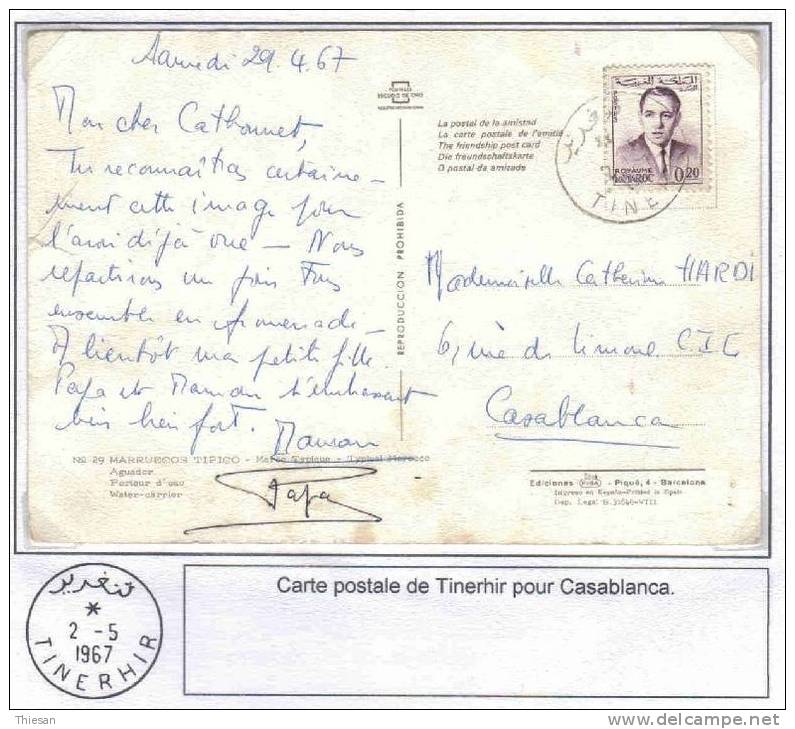 Samedi 29.4.67
Mon cher Cathounet,
Tu reconnaîtras certaine-
ment cette image pour
l'avoir déjà vue — Nous
repartirons un jour Tous
ensemble en promenade —
A bientôt ma petite fille.
Papa et Maman t'embrassent
bien bien fort. Maman
Papa
No 29 MARRUECOS TIPICO - Maroc Typique - Typical Morocco
Aguador
Porteur d'eau
Water-carrier
REPRODUCCION PROHIBIDA
La postal de la amistad
La carte postale de l'amitié
The friendship post card
Die freundschaftskarte
O postal da amizade
المملكة المغربية
ROYAUME
DU MAROC
0,20
TINE
Mademoiselle Catherine HARDI
6, rue du Limous CIL
Casablanca
Ediciones - Piqué, 4 - Barcelona
Impreso en España-Printed in Spain
Dep. Legal B. 31640-VIII
تنغرير
*
2 -5
1967
TINERHIR
Carte postale de Tinerhir pour Casablanca.
Thiesan
www.delcampe.net